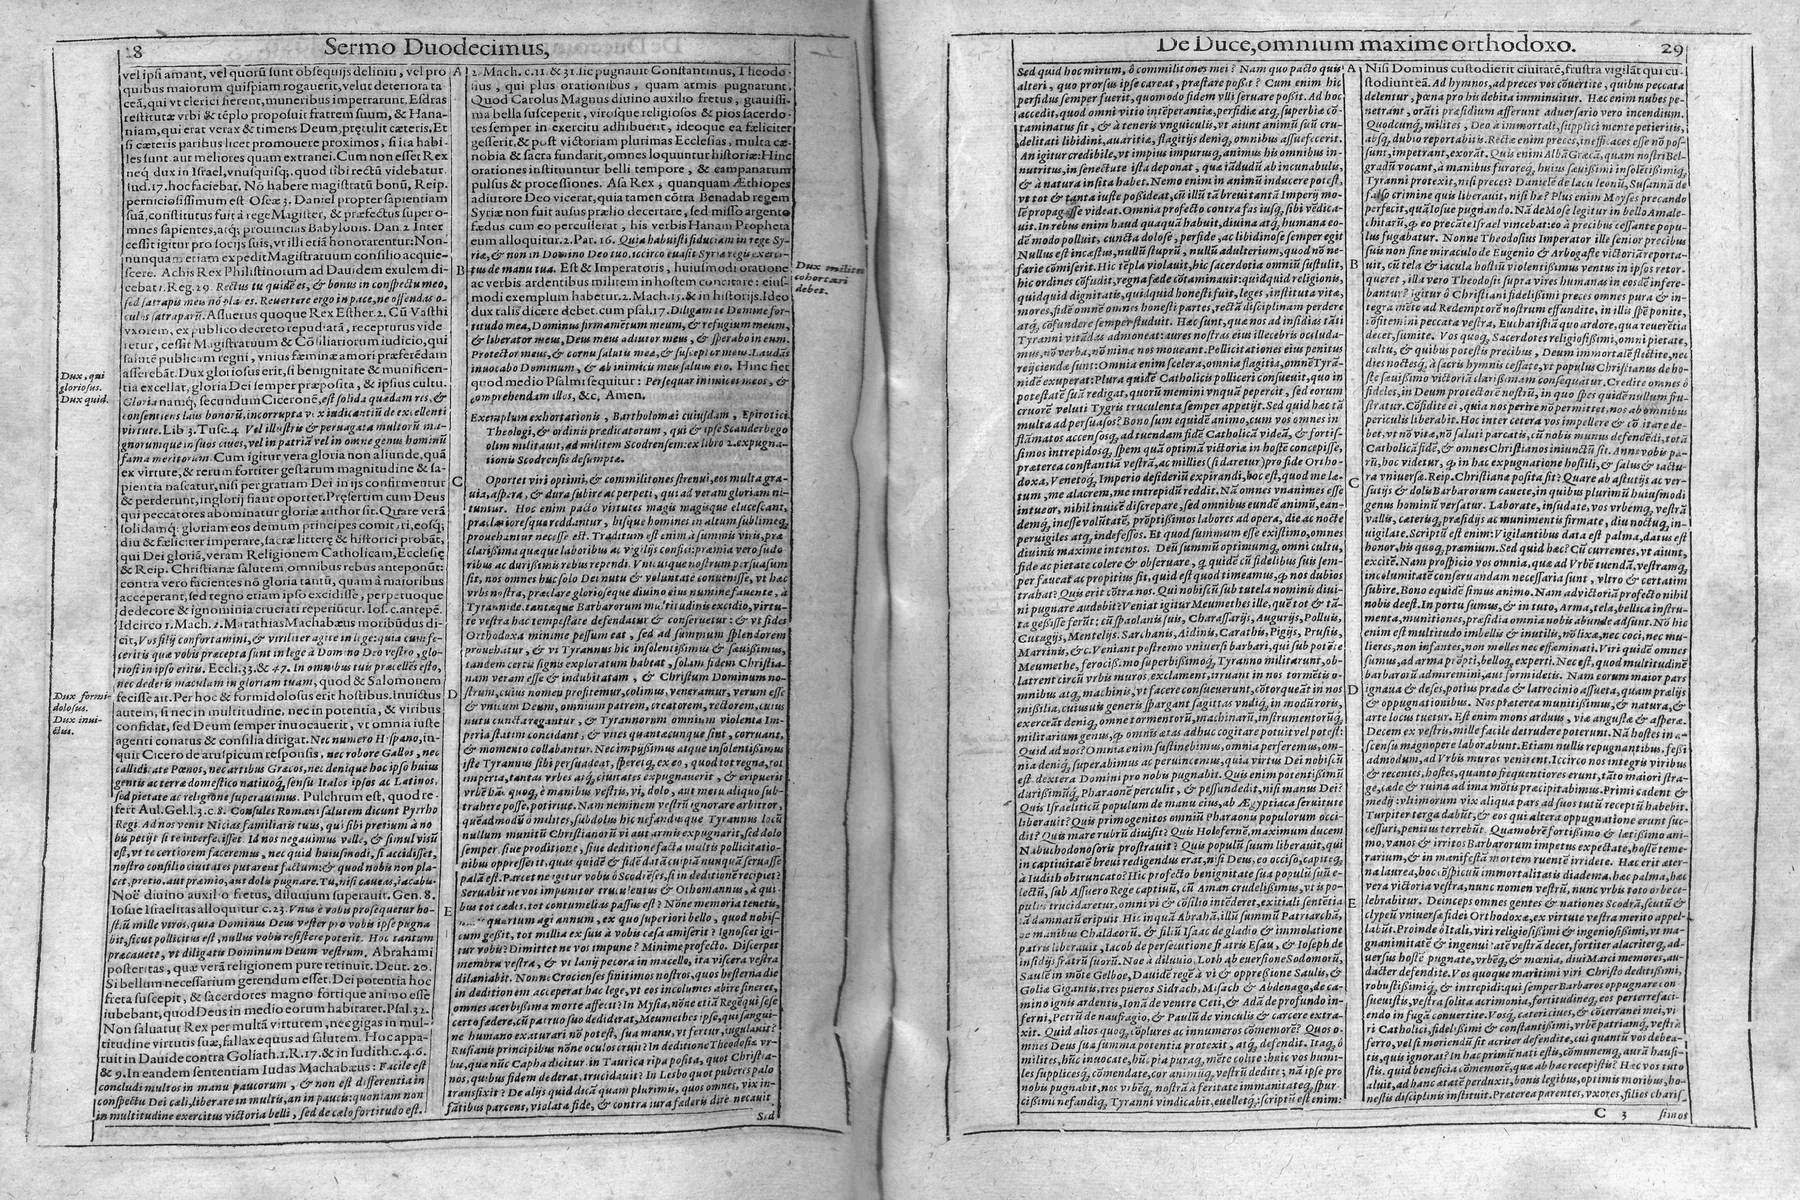 28
Sermo Duodecimus,
vel ipsi amant, vel quorũ sunt obsequijs deliniti, vel pro
quibus maiorum quispiam rogauerit, velut deteriora ta-
ceã, qui vt clerici fierent, muneribus impetrarunt. Esdras
restitutæ vrbi & tẽplo proposuit fratrem suum, & Hana-
niam, qui erat verax & timens Deum, prętulit cæteris. Et
si cæteris paribus licet promouere proximos, si ita habi-
les sunt aut meliores quam extranei. Cum non esset Rex
neq; dux in Israel, vnusquisq;, quod tibi rectũ videbatur.
Iud. 17. hoc faciebat. Nõ habere magistratũ bonũ, Reip.
perniciosissimum est Oseæ 3. Daniel propter sapientiam
suã, constitutus fuit à rege Magister, & præfectus super o-
mnes sapientes, atq; prouincias Babylonis. Dan. 2 Inter
cessit igitur pro socijs suis, vt illi etiã honorarentur: Non-
nunquam etiam expedit Magistratuum consilio acquie-
scere. Achis Rex Philistinorum ad Dauidem exulem di-
cebat 1. Reg. 29. Rectus tu quidẽ es, & bonus in conspectu meo,
sed satrapis meis nõ places. Reuertere ergo in pace, ne offendas o-
culos satraparũ. Assuerus quoque Rex Esther. 2. Cũ Vasthi
vxorem, ex publico decreto repudiatã, recepturus vide
retur, cessit Magistratuum & Cõsiliariorum iudicio, qui
salutẽ publicam regni, vnius fæminæ amori præferẽdam
asserebãt. Dux gloriosus erit, si benignitate & munificen-
tia excellat, gloria Dei semper præposita, & ipsius cultu.
Gloria namq;, secundum Ciceronẽ, est solida quædam res, &
consentiens laus bonorũ, incorrupta vox iudicantiũ de excellenti
virtute. Lib 3. Tusc. 4 Vel illustris & peruagata multorũ ma-
gnorumque in suos ciues, vel in patriã vel in omne genus hominũ
fama meritorum. Cum igitur vera gloria non aliunde, quã
ex virtute, & rerum fortiter gestarum magnitudine & sa-
pientia nascatur, nisi per gratiam Dei in ijs confirmentur
& perderunt, inglorij fiant oportet. Pręsertim cum Deus
qui peccatores abominatur gloriæ author sit. Quare verã
solidamq; gloriam eos demum principes comitari, eosq;
diu & fæliciter imperare, sacræ litterę & historici probãt,
qui Dei gloriã, veram Religionem Catholicam, Ecclesię
& Reip. Christianæ salutem, omnibus rebus anteponũt:
contra vero facientes nõ gloria tantũ, quam à maioribus
acceperant, sed regno etiam ipso excidisse, perpetuoque
dedecore & ignominia cruciati reperiũtur. Ios. c. antepẽ.
Idcirco 1. Mach. 2. Matathias Machabæus moribũdus di-
cit, Vos filij confortamini, & viriliter agite in lege: quia cum fe-
ceritis quæ vobis præcepta sunt in lege à Domino Deo vestro, glo-
riosi in ipso eritis. Eccli. 33. & 47. In omnibus tuis præcellẽs esto,
nec dederis maculam in gloriam tuam, quod & Salomonem
fecisse ait. Per hoc & formidolosus erit hostibus. Inuictus
autem, si nec in multitudine, nec in potentia, & viribus
confidat, sed Deum semper inuocauerit, vt omnia iuste
agenti conatus & consilia dirigat. Nec numero Hispano, in-
quit Cicero de aruspicum responsis, nec robore Gallos, nec
calliditate Pœnos, nec artibus Græcos, nec denique hoc ipso huius
gentis ac terræ domestico natiuoq; sensu Italos ipsos ac Latinos,
sed pietate ac religione superauimus. Pulchrum est, quod re-
fert Aul. Gel. l. 3. c. 8. Consules Romani salutem dicunt Pyrrho
Regi Ad nos venit Nicias familiaris tuus, qui sibi pretium à no
bis petijt si te interfecisset. Id nos negauimus velle, & simul visũ
est, vt te certiorem faceremus, nec quid huiusmodi, si accidisset,
nostro consilio ciuitates putarent factum: & quod nobis non pla-
cet, pretio, aut præmio, aut dolis pugnare. Tu, nisi caueas, iacabis.
Noë diuino auxilio fretus, diluuium superauit. Gen. 8.
Iosue Israelitas alloquitur c. 23. Vnus è vobis prosequetur ho-
stiũ mille viros, quia Dominus Deus vester pro vobis ipse pugna
bit, sicut pollicitus est, nullus vobis resistere poterit. Hoc tantum
præcauete, vt diligatis Dominum Deum vestrum, Abrahami
posteritas, quæ verã religionem pure retinuit. Deut. 20.
Si bellum necessarium gerendum esset. Dei potentia hoc
freta suscepit, & sacerdotes magno fortique animo esse
iubebant, quod Deus in medio eorum habitaret. Psal. 32.
Non saluatur Rex per multã virtutem, nec gigas in mul-
titudine virtutis suæ, fallax equus ad salutem. Hoc appa-
ruit in Dauide contra Goliath. 1. R. 17. & in Iudith. c. 4. 6.
& 9. In eandem sententiam Iudas Machabæus: Facile est
concludi multos in manu paucorum, & non est differentia in
conspectu Dei cæli, liberare in multis, an in paucis: quoniam non
in multitudine exercitus victoria belli, sed de cælo fortitudo est.
Dux, qui
gloriosus.
Dux quid.
Dux formi-
dolosus.
Dux inui-
ctus.
A
B
C
D
E
2. Mach. c. 11. & 31. sic pugnauit Constantinus, Theodo-
sius, qui plus orationibus, quam armis pugnarunt.
Quod Carolus Magnus diuino auxilio fretus, grauissi-
ma bella susceperit, virosque religiosos & pios sacerdo-
tes semper in exercitu adhibuerit, ideoque ea fæliciter
gesserit, & post victoriam plurimas Ecclesias, multa cæ-
nobia & sacra fundarit, omnes loquuntur historiæ: Hinc
orationes instituuntur belli tempore, & campanarum
pulsus & processiones. Asa Rex, quanquam Æthiopes
adiutore Deo vicerat, quia tamen cõtra Benadab regem
Syriæ non fuit ausus prælio decertare, sed misso argento
fædus cum eo percusserat, his verbis Hanani Propheta
eum alloquitur. 2. Par. 16. Quia habuisti fiduciam in rege Sy-
riæ, & non in Domino Deo tuo, iccirco euasit Syriæ regis exerci-
tus de manu tua. Est & Imperatoris, huiusmodi oratione
ac verbis ardentibus militem in hostem concitare: eius-
modi exemplum habetur. 2. Mach. 15. & in historijs. Ideo
dux talis dicere debet. cum psal. 17. Diligam te Domine for-
titudo mea, Dominus firmamẽtum meum, & refugium meum,
& liberator meus, Deus meus adiutor meus, & sperabo in eum.
Protector meus, & cornu salutis meæ, & susceptor meus. Laudãs
inuocabo Dominum, & ab inimicis meis saluus ero. Hinc fiet
quod medio Psalmi sequitur: Persequar inimicos meos, &
comprehendam illos, &c. Amen.
Exemplum exhortationis, Bartholomæi cuiusdam, Epirotici
Theologi, & ordinis prædicatorum, qui & ipse Scanderbego
olim militauit, ad militem Scodrensem: ex libro 2. expugna-
tionis Scodrensis desumptæ.
Oportet viri optimi, & commilitones strenui, eos multa gra-
uia, aspera, & dura subire ac perpeti, qui ad veram gloriam ni-
tuntur. Hoc enim pacto virtutes magis magisque elucescant,
præclarioresque reddantur, hisque homines in altum sublimeq;
prouehantur necesse est. Traditum est enim à summis viris, præ
clarissima quæque laboribus ac vigilijs confici: præmia vero sudo
ribus ac durissimis rebus rependi. Vnicuique nostrum persuasum
sit, nos omnes huc solo Dei nutu & voluntate conuenisse, vt hæc
vrbs nostra, præclare glorioseque diuino eius numine fauente, à
Tyrannide, tantæque Barbarorum multitudinis excidio, virtu-
te vestra hac tempestate defendatur & conseruetur: & vt fides
Orthodoxa minime pessum eat, sed ad summum splendorem
prouehatur, & vt Tyrannus hic insolentissimus & sæuissimus,
tandem certis signis exploratum habeat, solam fidem Christia-
nam veram esse & indubitatam, & Christum Dominum no-
strum, cuius nomen profitemur, colimus, veneramur, verum esse
& vnicum Deum, omnium patrem, creatorem, rectorem, cuius
nutu cuncta regantur, & Tyrannorum omnium violenta Im-
peria statim concidant, & vires quantæcunque sint, corruant,
& momento collabantur. Nec impijssimus atque insolentissimus
iste Tyrannus sibi persuadeat, speretq; ex eo, quod tot regna, tot
imperia, tantas vrbes atq; ciuitates expugnauerit, & eripuerit
vrbẽ hãc quoq; è manibus vestris, vi, dolo, aut metu aliquo sub-
trahere posse, potiriue. Nam neminem vestrũ ignorare arbitror,
quẽadmodũ ô milites, subdolus hic nefandusque Tyrannus locũ
nullum munitũ Christianorũ vi aut armis expugnarit, sed dolo
semper, siue proditione, siue deditione facta multis pollicitatio-
nibus oppresserit, quas quidẽ & fidẽ datã cuipiã nunquã seruasse
palã est. Parcet ne igitur vobis ô Scodrẽses, si in deditionẽ recipiet?
Seruabit ne vos impunitos truculentus & Othomannus, à qui-
bus tot cædes, tot contumelias passus est? Nõne memoria tenetis,
quartum agi annum, ex quo superiori bello, quod nobis-
cum gessit, tot millia ex suis à vobis cæsa amiserit? Ignoscet igi-
tur vobis? Dimittet ne vos impune? Minime profecto. Discerpet
membra vestra, & vt lanij pecora in macello, ita viscera vestra
dilaniabit. Nonne Crocienses finitimos nostros, quos hesterna die
in deditionem acceperat hac lege, vt eos incolumes abire sineret,
omnes acerbissima morte affecit? In Mysia, nõne etiã Regẽ qui sese
certo fædere, cũ patruo suo dediderat, Meumethes ipse, qui sangui-
ne humano exaturari nõ potest, sua manu, vt fertur, iugulauit?
Rusianis principibus nõne oculos truit? In deditione Theodosiæ vr-
bis, quæ nũc Capha dicitur in Taurica ripa posita, quot Christia-
nos, quibus fidem dederat, trucidauit? In Lesbo quot puberes palo
transfixit? De alijs quid dicã quam plurimis, quos omnes, vix in-
fãtibus parcens, violata fide, & contra iura fæderis dire necauit.
Sed
Dux milites
cohortari
debet.
De Duce, omnium maxime orthodoxo.
29
Sed quid hoc mirum, ô commilitones mei? Nam quo pacto quis
alteri, quo prorsus ipse careat, præstare poßit? Cum enim hic
perfidus semper fuerit, quomodo fidem vlli seruare poßit. Ad hoc
accedit, quod omni vitio intẽperantiæ, perfidiæ atq; superbiæ cõ-
taminatus sit, & à teneris vnguiculis, vt aiunt animũ suũ cru-
delitati libidini, auaritiæ, flagitijs deniq; omnibus assuefecerit.
An igitur credibile, vt impius impurusq; animus his omnibus in-
nutritus, in senectute ista deponat, quæ iãdudũ ab incunabulis,
& à natura insita habet. Nemo enim in animũ inducere potest,
vt tot & tanta iuste poßideat, cũ illũ tã breui tantã Imperij mo-
lẽ propagasse videat. Omnia profecto contra fas iusq; sibi vẽdica-
uit. In rebus enim haud quaquã habuit, diuina atq; humana eo-
dẽ modo polluit, cuncta dolose, perfide, ac libidinose semper egit
Nullus est incæstus, nullũ stuprũ, nullũ adulterium, quod nõ ne-
farie cõmiserit. Hic tẽpla violauit, hic sacerdotia omniũ sustulit,
hic ordines cõfudit, regna fæde cõtaminauit: quidquid religionis,
quidquid dignitatis, quidquid honesti fuit, leges, instituta vitæ,
mores, fidẽ omnẽ omnes honesti partes, rectã disciplinam perdere
atq; cõfundere semper studuit. Hæc sunt, quæ nos ad insidias tãti
Tyranni vitãdas admoneat: aures nostras eius illecebris occluda-
mus, nõ verba, nõ minæ nos moueant. Pollicitationes eius penitus
reijciendæ sunt: Omnia enim scelera, omnia flagitia, omnẽ Tyrã-
nidẽ exuperat: Plura quidẽ Catholicis polliceri consueuit, quo in
potestatẽ suã redigat, quorũ memini vnquã pepercit, sed eorum
cruorẽ veluti Tygris truculenta semper appetijt. Sed quid hæc tã
multa ad persuasos? Bono sum equidẽ animo, cum vos omnes in
flãmatos accensosq; ad tuendam fidẽ Catholicã videã, & fortis-
simos intrepidosq; spem quã optimã victoriæ in hostẽ concepisse,
præterea constantiã vestrã, ac millies (si daretur) pro fide Ortho-
doxa, Venetoq; Imperio desideriũ expirandi, hoc est, quod me læ-
tum, me alacrem, me intrepidũ reddit. Nã omnes vnanimes esse
intueor, nihil inuicẽ discrepare, sed omnibus eundẽ animũ, ean-
demq; inesse volũtatẽ, prõptissimos labores ad opera, die ac nocte
peruigiles atq; indefessos. Et quod summum esse existimo, omnes
diuinis maxime intentos. Deũ summũ optimumq; omni cultu,
fide ac pietate colere & obseruare, q; quidẽ cũ fidelibus suis sem-
per faueat ac propitius sit, quid est quod timeamus, q; nos dubios
trahat? Quis erit cõtra nos. Qui nobiscũ sub tutela nominis diui-
ni pugnare audebit? Veniat igitur Meumethes ille, quẽ tot & tã-
ta gessisse ferũt: cũ spaolanis suis, Charassarijs, Augurijs, Polluis,
Cutagijs, Mentelijs. Sarchanis, Aidinis, Carathis, Pigijs, Prusijs,
Martinis, &c. Veniant postremo vniuersi barbari, qui sub potẽte
Meumethe, ferociß.mo superbissimoq; Tyranno militarunt, ob-
latrent circũ vrbis muros, exclament, irruant in nos tormẽtis o-
mnibus atq; machinis, vt facere consueuerunt, cõtorqueãt in nos
missilia, cuiusuis generis spargant sagittas vndiq; in modũ roris,
exerceãt deniq; omne tormentorũ, machinarũ, instrumentorũq;
militarium genus, q; omnis ætas adhuc cogitare potuit vel potest:
Quid ad nos? Omnia enim sustinebimus, omnia perferemus, om-
nia deniq; superabimus ac peruincemus, quia virtus Dei nobiscũ
est. dextera Domini pro nobis pugnabit. Quis enim potentissimũ
durissimũq; Pharaonẽ perculit, & pessundedit, nisi manus Dei?
Quis Israeliticũ populum de manu eius, ab Ægyptiaca seruitute
liberauit? Quis primogenitos omniũ Pharaonis populorum occi-
dit? Quis mare rubrũ diuisit? Quis Holofernẽ, maximum ducem
Nabuchodonosoris prostrauit? Quis populũ suum liberauit, qui
in captiuitatẽ breui redigendus erat, nisi Deus, eo occiso, capiteq;
à Iudith obtruncato? Hic profecto benignitate sua populũ suũ e-
lectũ, sub Assuero Rege captiuũ, cũ Aman crudelissimus, vt is po-
pulus trucidaretur, omni vi & cõsilio intẽderet, exitiali sentẽtia
iã damnatũ eripuit Hic inquã Abrahã, illũ summũ Patriarchã,
de manibus Chaldæorũ, & filiũ Isaac de gladio & immolatione
patris liberauit, Iacob de persecutione fratris Esau, & Ioseph de
insidijs fratrũ suorũ. Noe à diluuio, Loth ab euersione Sodomorũ,
Saulẽ in mõte Gelboe, Dauidẽ regẽ à vi & oppressione Saulis, &
Goliæ Gigantis, tres pueros Sidrach, Misach & Abdenago, de ca-
mino ignis ardentis, Ionã de ventre Ceti, & Adã de profundo in-
ferni, Petrũ de naufragio, & Paulũ de vinculis & carcere extra-
xit. Quid alios quoq; cõplures ac innumeros cõmemorẽ? Quos o-
mnes Deus sua summa potentia protexit, atq; defendit. Itaq; ô
milites, hũc inuocate, hũc pia pura q; mẽte colite: huic vos humi-
les supplicesq; cõmendate, cor animũq; vestrũ dedite; nã ipse pro
nobis pugnabit, nos vrbẽq; nostrã à feritate immanitateq; spur-
cissimi nefandiq; Tyranni vindicabit, euelletq;: scriptũ est enim:
A
B
C
D
E
Nisi Dominus custodierit ciuitatẽ, frustra vigilãt qui cu-
stodiunt eã. Ad hymnos, ad preces vos cõuertite, quibus peccata
delentur, pœna pro his debita imminuitur. Hæc enim nubes pe-
netrant, orãti præsidium afferunt aduersario vero incendium.
Quodcunq; milites, Deo immortali, supplici mente petieritis,
absq; dubio reportabitis. Rectæ enim preces, inefficaces esse nõ pos-
sunt, impetrant, exorãt. Quis enim Albã Græcã, quam nostri Bel-
gradũ vocant, à manibus furoreq; huius sæuissimi insolẽtissimiq;
Tyranni protexit, nisi preces? Danielẽ de lacu leonũ, Susannã de
falso crimine quis liberauit, nisi hæ? Plus enim Moyses precando
perfecit, quã Iosue pugnando. Nã de Mose legitur in bello Amale-
chitarũ, q; eo precãte Israel vincebat: eo à precibus cessante popu-
lus fugabatur. Nonne Theodosius Imperator ille senior precibus
suis non sine miraculo de Eugenio & Arbogaste victoriã reporta-
uit, cũ tela & iacula hostiũ violentissimus ventus in ipsos retor-
queret, illa vero Theodosij supra vires humanas in eosdẽ infere-
bantur? igitur ô Christiani fidelissimi preces omnes puræ & in-
tegra mẽte ad Redemptorẽ nostrum effundite, in illis spẽ ponite,
cõfitemini peccata vestra, Eucharistiã quo ardore, qua reuerẽtia
decet, sumite. Vos quoq; Sacerdotes religiosissimi, omni pietate,
cultu, & quibus potestis precibus, Deum immortalẽ flectite, nec
dies noctesq; à sacris hymnis cessate, vt populus Christianus de ho-
ste sæuissimo victoriã clarissimam consequatur. Credite omnes ô
fideles, in Deum protectorẽ nostrũ, in quo spes quidẽ nullum fru-
stratur. Cõfidite ei, quia nos perire nõ permittet, nos ab omnibus
periculis liberabit. Hoc inter cetera vos impellere & cõcitare de-
bet, vt nõ vitæ, nõ saluti parcatis, cũ nobis munus defendẽdi, totã
Catholicã fidẽ, & omnes Christianos iniunctũ sit. An ne vobis pa-
rũ, hoc videtur, q; in hac expugnatione hostili, & salus & iactu-
ra vniuersæ Reip. Christianæ posita sit? Quare ab astutijs ac ver-
sutijs & dolis Barbarorum cauete, in quibus plurimũ huiusmodi
genus hominũ versatur. Laborate, insudate, vos vrbẽmq; vestrã
vallis, cæterisq; præsidijs ac munimentis firmate, diu noctuq; in-
uigilate. Scriptũ est enim: Vigilantibus data est palma, datus est
honor, his quoq; præmium. Sed quid hæc? Cũ currentes, vt aiunt,
excitẽ. Nam prospicio vos omnia, quæ ad Vrbẽ tuendã, vestramq;
incolumitatẽ conseruandam necessaria sunt, vltro & certatim
subire. Bono equidẽ simus animo. Nam ad victoriã profecto nihil
nobis deest. In portu sumus, & in tuto, Arma, tela, bellica instru-
menta, munitiones, præsidia omnia nobis abunde adsunt. Nõ hic
enim est multitudo imbellis & inutilis, nõ lixæ, nec coci, nec mu-
lieres, non infantes, non molles nec effeminati. Viri quidẽ omnes
sumus, ad arma prõpti, belloq; experti. Nec est, quod multitudinẽ
barbarorũ admiremini, aut formidetis. Nam eorum maior pars
ignaua & deses, potius prædæ & latrocinio assueta, quam prælijs
& oppugnationibus. Nos præterea munitissimus, & natura, &
arte locus tuetur. Est enim mons arduus, viæ angustæ & asperæ.
Decem ex vestris, mille facile detrudere poterunt. Nã hostes in a-
scensu magnopere laborabunt. Etiam nullis repugnantibus, feßi
admodum, ad Vrbis muros venirent. Iccirco nos integris viribus
& recentes, hostes, quanto frequentiores erunt, tãto maiori stra-
ge, cæde & ruina ad ima mõtis præcipitabimus. Primi cadent &
medij: vltimorum vix aliqua pars ad suos tutũ receptũ habebit.
Turpiter terga dabũt, & eos qui altera oppugnatione erunt suc-
cessuri, penitus terrebũt. Quamobrẽ fortissimo & lætissimo ani-
mo, vanos & irritos Barbarorum impetus expectate, hostẽ teme-
rarium, & in manifestã mortem ruentẽ irridete. Hæc erit æter-
na laurea, hoc cõspicuũ immortalitatis diadema, hæc palma, hæc
vera victoria vestra, nunc nomen vestrũ, nunc vrbis toto orbe ce-
lebrabitur. Deinceps omnes gentes & nationes Scodrã, scutũ &
clypeũ vniuersæ fidei Orthodoxæ, ex virtute vestra merito appel-
labũt. Proinde ô Itali, viri religiosissimi & ingeniosissimi, vt ma-
gnanimitatẽ & ingenuitatẽ vestrã decet, fortiter alacriterq; ad-
uersus hostẽ pugnate, vrbẽq; & mœnia, diui Marci memores, au-
dacter defendite. Vos quoque maritimi viri Christo deditissimi,
robustissimiq; & intrepidi: qui semper Barbaros oppugnare con-
sueuistis, vestra solita acrimonia, fortitudineq; eos perterrefaci-
endo in fugã conuertite. Vosq; cateri ciues, & cõterranei mei, vi
ri Catholici, fidelissimi & constantissimi, vrbẽ patriamq; vestrã
ferro, vel si moriendũ sit acriter defendite, cui quantũ vos debea-
tis, quis ignorat? In hac primũ nati estis, cõmunemq; aurã hausi-
stis, quid beneficia cõmemorẽ, quæ ab hac recepistis? Hæc vos tuto
aluit, ad hanc ætatẽ perduxit, bonis legibus, optimis moribus, ho-
nestis disciplinis instituit. Præterea parentes, vxores, filios charis-
C 3
simos